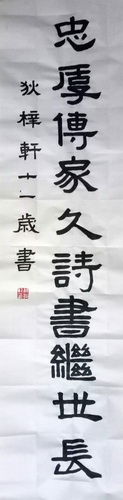 忠厚傳家久詩書繼世長
狄梓軒十一歲書